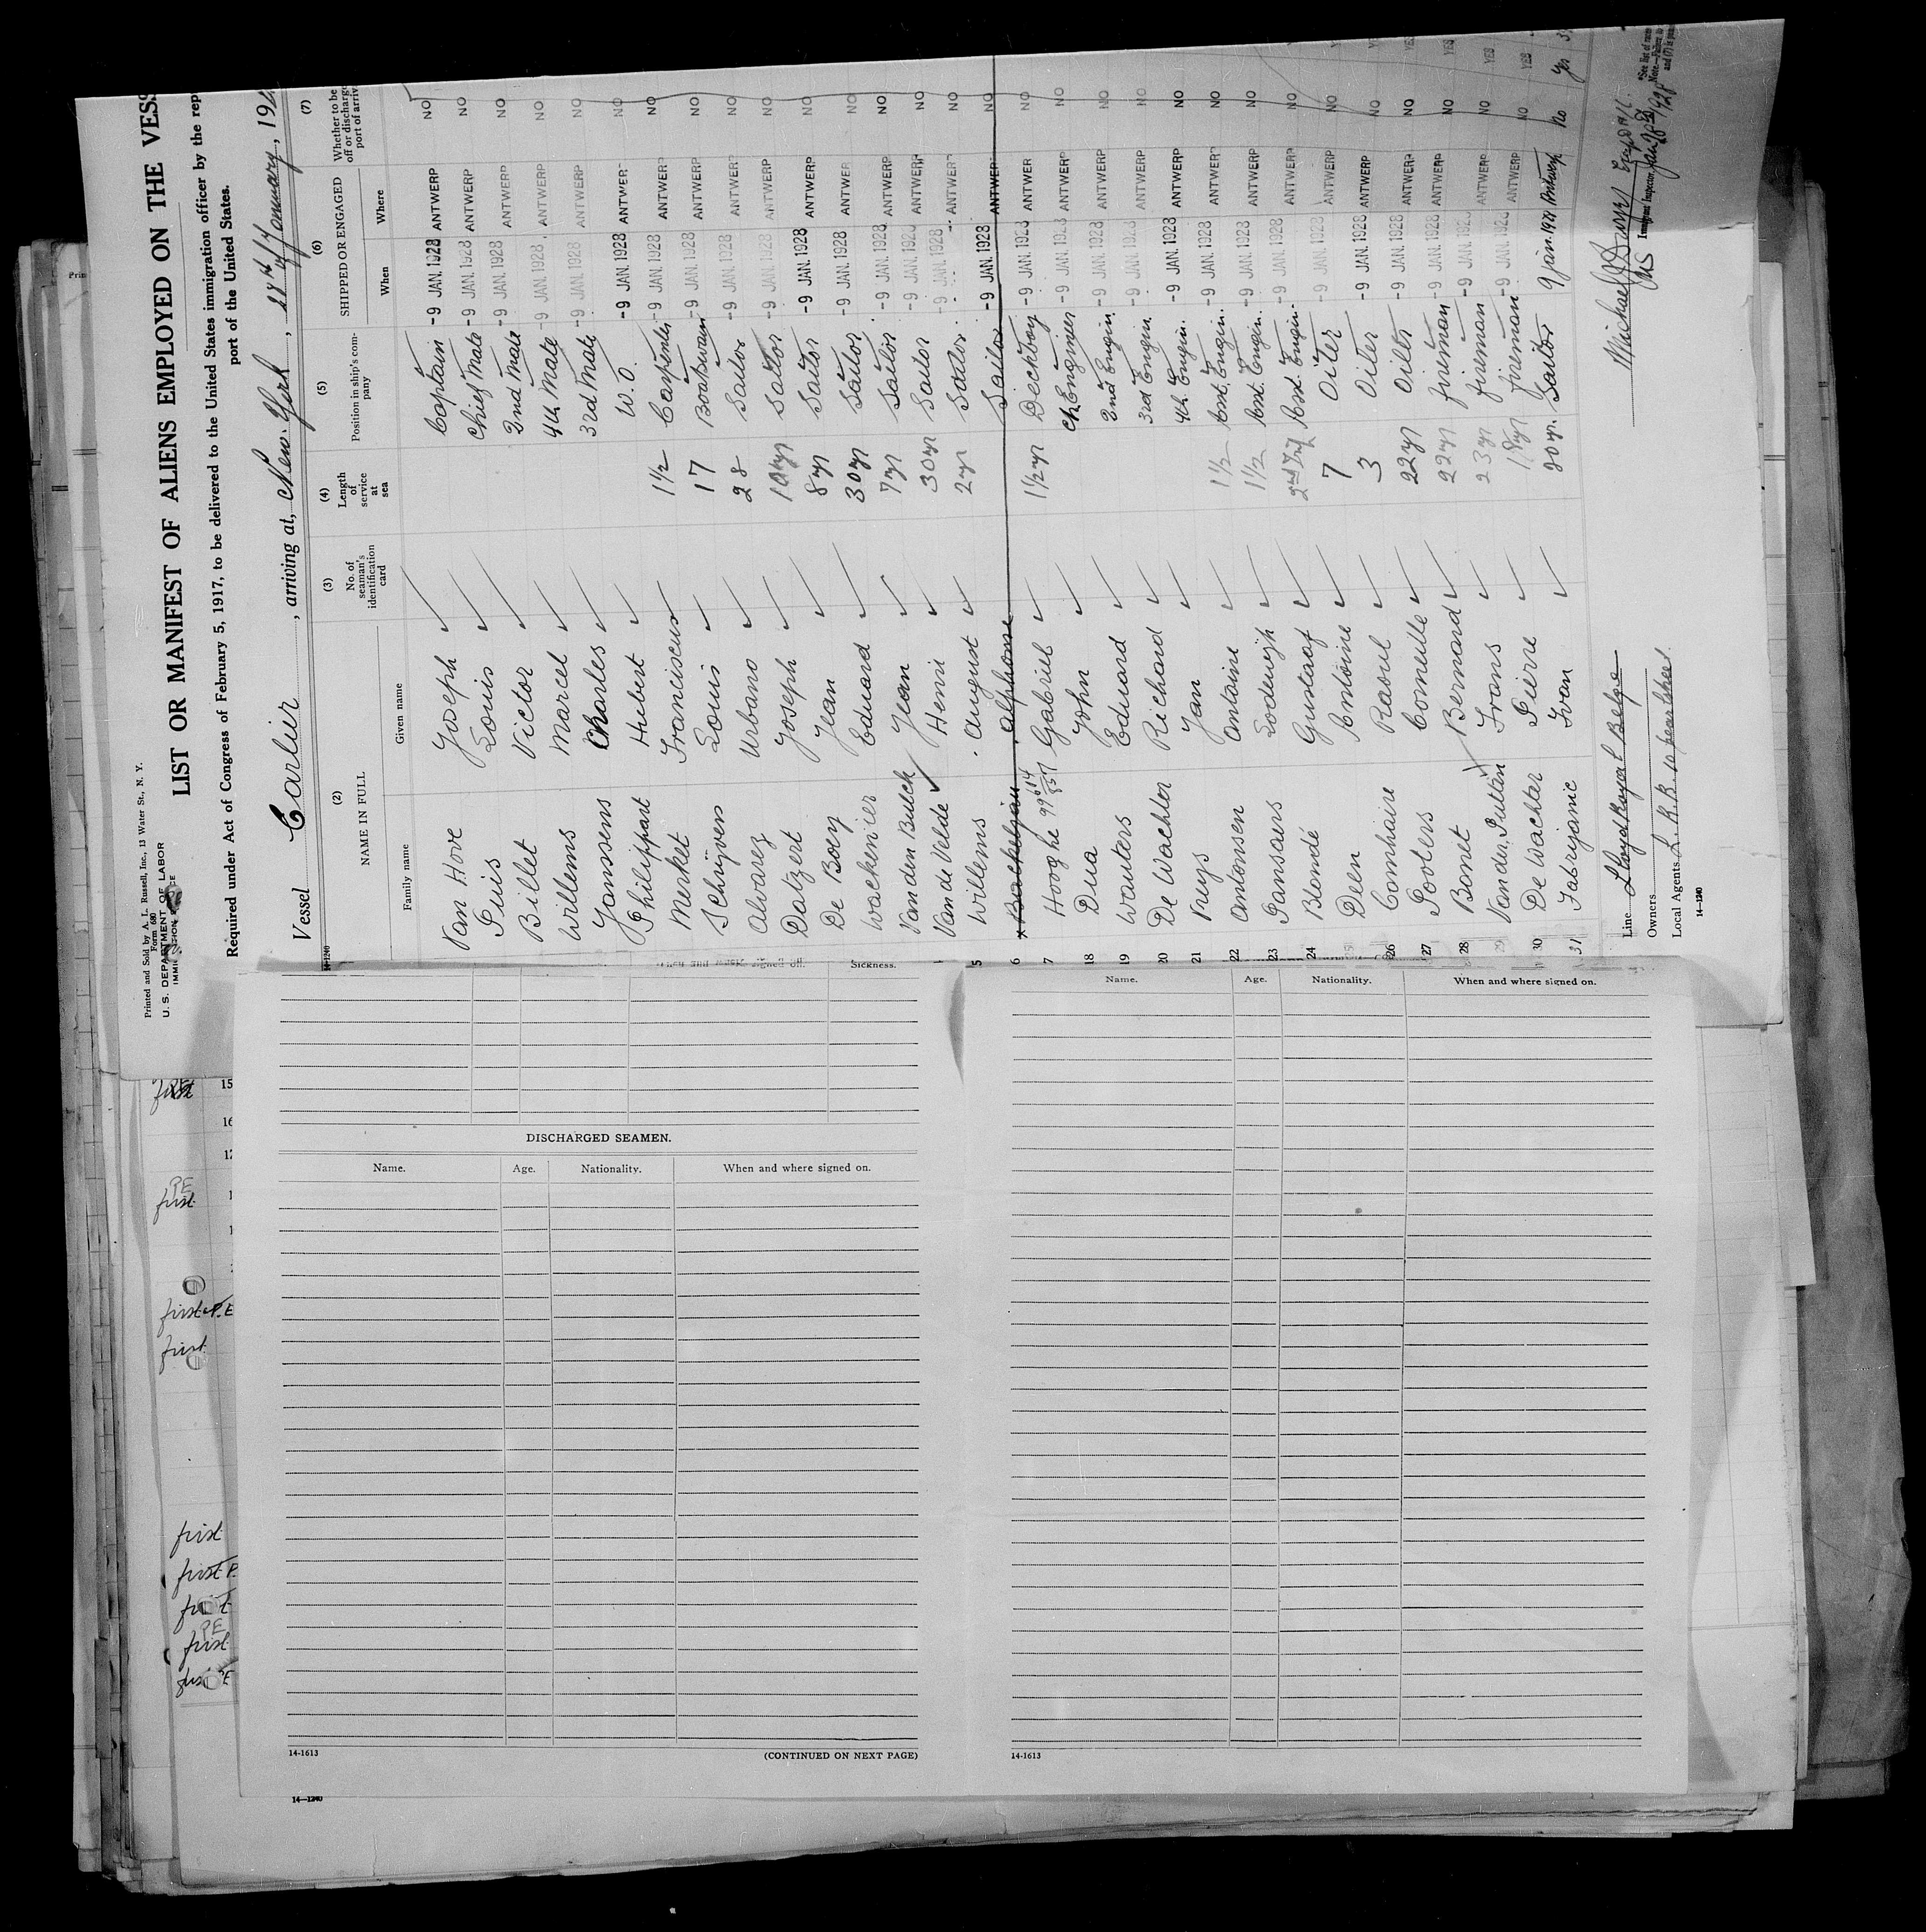 Printed and Sold by A. L. Russell, Inc., 13 Water St., N. Y.
Form 680
U. S. DEPARTMENT OF LABOR
LIST OR MANIFEST OF ALIENS EMPLOYED ON THE VESS
Required under Act of Congress of February 5, 1917, to be delivered to the United States immigration officer by the rep
port of the United States.
Vessel Carlier, arriving at, New. York, 28th of January, 192
(2) (3) (4) (5) (6) (7)
NAME IN FULL No. of seaman's identification card Length of service at sea Position in ship's company SHIPPED OR ENGAGED Whether to be off or discharge port of arriv
Family name Given name When Where
14-1240
Van Hove Joseph Captain -9 JAN. 1928 ANTWERP NO
Puis Louis Chief Mate -9 JAN. 1928 ANTWERP NO
Billet Victor 2nd Mate -9 JAN. 1928 ANTWERP NO
Willems Marcel 4th Mate -9 JAN. 1928 ANTWERP NO
Janssens Charles 3rd Mate -9 JAN. 1928 ANTWERP NO
Philippart Hubert W.O. -9 JAN. 1928 ANTWER NO
Merket Franciscus 1½ Carpenter -9 JAN. 1928 ANTWERP NO
Schrijvers Louis 17 Boatswain -9 JAN. 1928 ANTWERP NO
Alvarez Urbano 28 Sailor -9 JAN. 1928 ANTWERP NO
Datzert Joseph 10yr Sailor -9 JAN. 1928 ANTWERP NO
De Boey Jean 8yr Sailor -9 JAN. 1928 ANTWERP NO
Wackenier Eduard 30yr Sailor -9 JAN. 1928 ANTWER NO
Van den Bulck Jean 7yr Sailor -9 JAN. 1928 ANTWERP NO
Van de Velde Henri 30yr Sailor -9 JAN. 1928 ANTWERP NO
5 Willems August 2yr Sailor -9 JAN. 1928 ANTWERP NO
6 x Alphonse Sailor -9 JAN. 1928 ANTWERP NO
7 Hooghe Gabriel 1½yr Deckboy -9 JAN. 1928 ANTWER NO
18 Dua John Ch. Engineer -9 JAN. 1928 ANTWERP NO
19 Wauters Eduard 2nd Engin. -9 JAN. 1928 ANTWERP NO
20 De Wachter Richard 3rd Engin. -9 JAN. 1928 ANTWERP NO
21 Nuys Jan 4th Engin. -9 JAN. 1928 ANTWERP NO
22 Antonsen Antoine 1½ Asst. Engin. -9 JAN. 1928 ANTWERP NO
23 Pansaers Lodewijk 1½ Asst. Engin. -9 JAN. 1928 ANTWERP NO
24 Blondé Gustaaf Asst. Engin. -9 JAN. 1928 ANTWERP NO
Deen Antoine 7 Oiler -9 JAN. 1928 ANTWERP NO
26 Comhaire Raoul 3 Oiler -9 JAN. 1928 ANTWERP NO
27 Corneille 22yr Oiler -9 JAN. 1928 ANTWERP NO
28 Bonet Bernard 22yr fireman -9 JAN. 1928 ANTWERP NO
29 Frans 23yr fireman -9 JAN. 1928 ANTWERP NO YES
30 De Wachter Pierre 18yr fireman -9 JAN. 1928 ANTWERP NO YES
31 Fabrijanic Ivan 20yr. Sailor 9 jan. 1928 Antwerp No Yes
Line Lloyd Royal Belge
Owners
Local Agents
Michael
Immigrant Inspector.
Jan 28 1928
14-1240
*See list of races
Sickness.
DISCHARGED SEAMEN.
Name. Age. Nationality. When and where signed on.
14-1613 (CONTINUED ON NEXT PAGE)
Name. Age. Nationality. When and where signed on.
14-1613
14-1240
first
15
16
PE
first
first P.E
first
first
first P.
PE
first